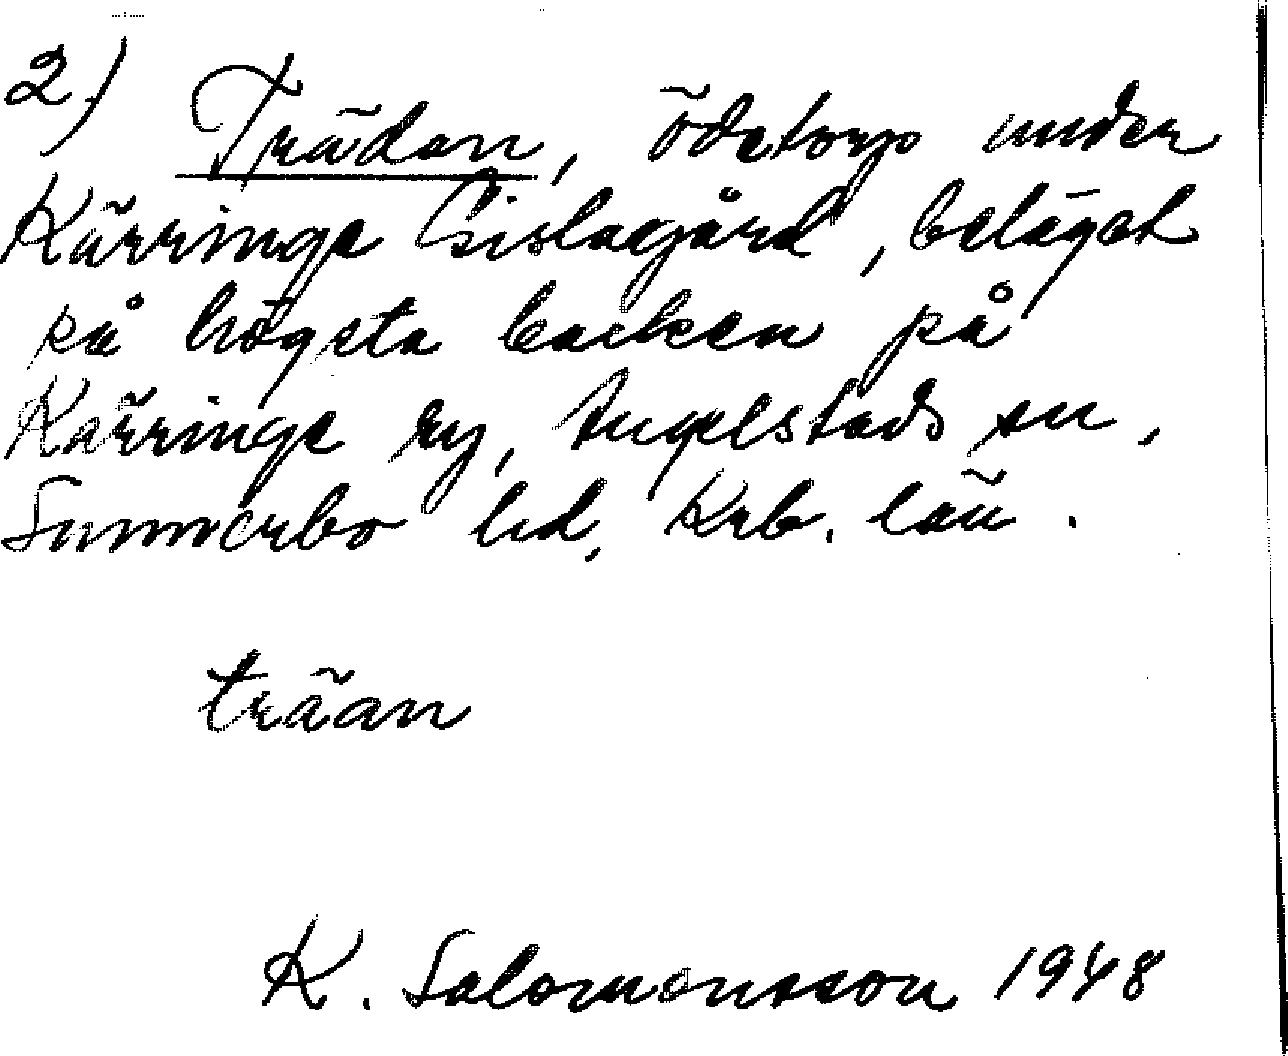 2)
Trädan, ödetorp under
Kärringe Gislagård, beläget
på högsta backen på
Kärringe by, Angelstads sn,
Sunnerbo hd, Krb. län.
träan
K. Salomonsson 1948